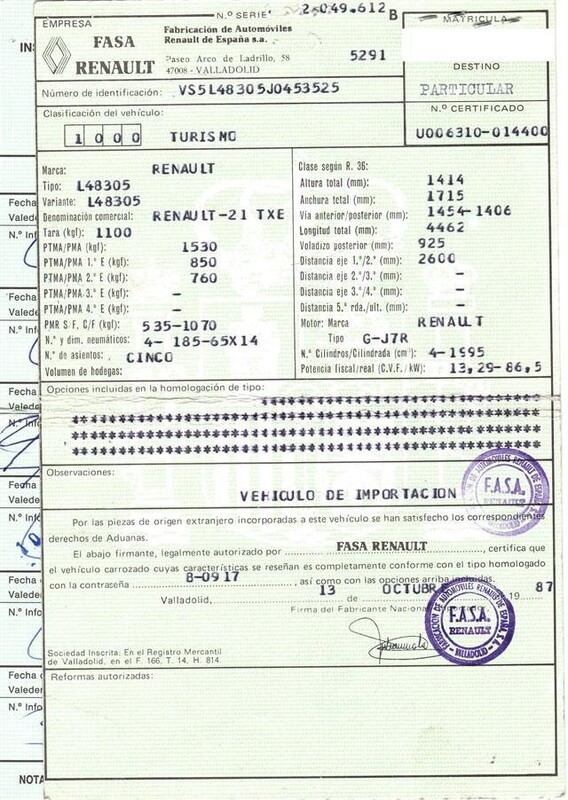 EMPRESA
N.º SERIE 2-049.612 B
MATRICULA
FASA
RENAULT
Fabricación de Automóviles
Renault de España s.a.
Paseo Arco de Ladrillo, 58
47008 - VALLADOLID
5291
DESTINO
PARTICULAR
Número de identificación: VS5L48305J0453525
N.º CERTIFICADO
U006310-014400
Clasificación del vehículo:
1 0 0 0 TURISMO
Marca: RENAULT
Tipo: L48305
Variante: L48305
Denominación comercial: RENAULT-21 TXE
Tara (kgf): 1100
PTMA/PMA (kgf): 1530
PTMA/PMA 1.º E (kgf): 850
PTMA/PMA 2.º E (kgf): 760
PTMA/PMA 3.º E (kgf): —
PTMA/PMA 4.º E (kgf): —
PMR S/F. C/F (kgf): 535-1070
N.º y dim. neumáticos: 4- 185-65X14
N.º de asientos: CINCO
Volumen de bodegas:
Clase según R. 36:
Altura total (mm): 1414
Anchura total (mm): 1715
Vía anterior/posterior (mm): 1454-1406
Longitud total (mm): 4462
Voladizo posterior (mm): 925
Distancia eje 1.º/2.º (mm): 2600
Distancia eje 2.º/3.º (mm): —
Distancia eje 3.º/4.º (mm): —
Distancia 5.ª rda./ult. (mm): —
Motor: Marca RENAULT
Tipo G-J7R
N.º Cilindros/Cilindrada (cm³): 4-1995
Potencia fiscal/real (C.V.F./kW): 13,29-86,5
Opciones incluidas en la homologación de tipo:
Observaciones:
VEHICULO DE IMPORTACION
F.A.S.A.
RENAULT
Por las piezas de origen extranjero incorporadas a este vehículo se han satisfecho los correspondientes
derechos de Aduanas.
El abajo firmante, legalmente autorizado por FASA RENAULT, certifica que
el vehículo carrozado cuyas características se reseñan es completamente conforme con el tipo homologado
con la contraseña 8-0917, así como con las opciones arriba incluidas.
Valladolid, 13 OCTUBRE 19 87
Firma del Fabricante Nacional
FABRICACION DE AUTOMOVILES RENAULT DE ESPAÑA, S. A.
F.A.S.A.
RENAULT
VALLADOLID
Sociedad Inscrita: En el Registro Mercantil
de Valladolid, en el F. 166, T. 14, H. 814.
Reformas autorizadas:
NOTA